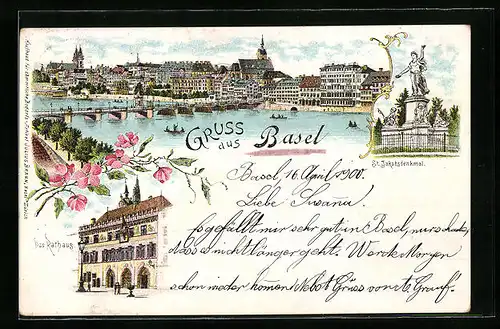 Gruss
aus
Basel
St. Jakobsdenkmal.
Das Rathaus
Basel, 16. April 1900.
Liebe
gefällt mir sehr gut in Basel, nur schade
dass es nicht länger geht. Werde Morgen
schon wieder komen Nebst Grüss von